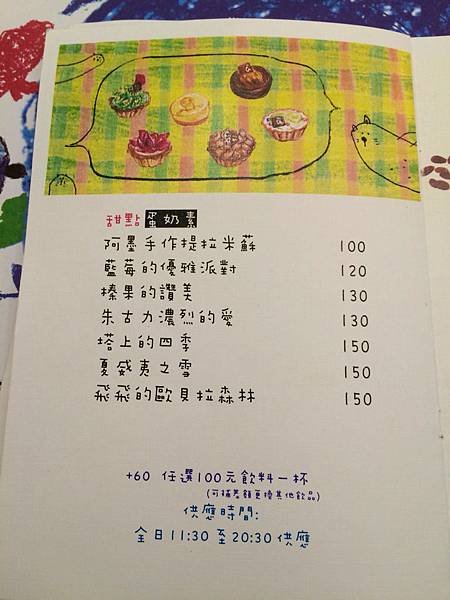 甜點 蛋奶素
阿墨手作提拉米蘇 100
藍莓的優雅派對 120
榛果的讚美 130
朱古力濃烈的愛 130
塔上的四季 150
夏威夷之雪 150
飛飛的歐貝拉森林 150
+60 任選100元飲料一杯
(可補差額更換其他飲品)
供應時間:
全日11:30至20:30供應